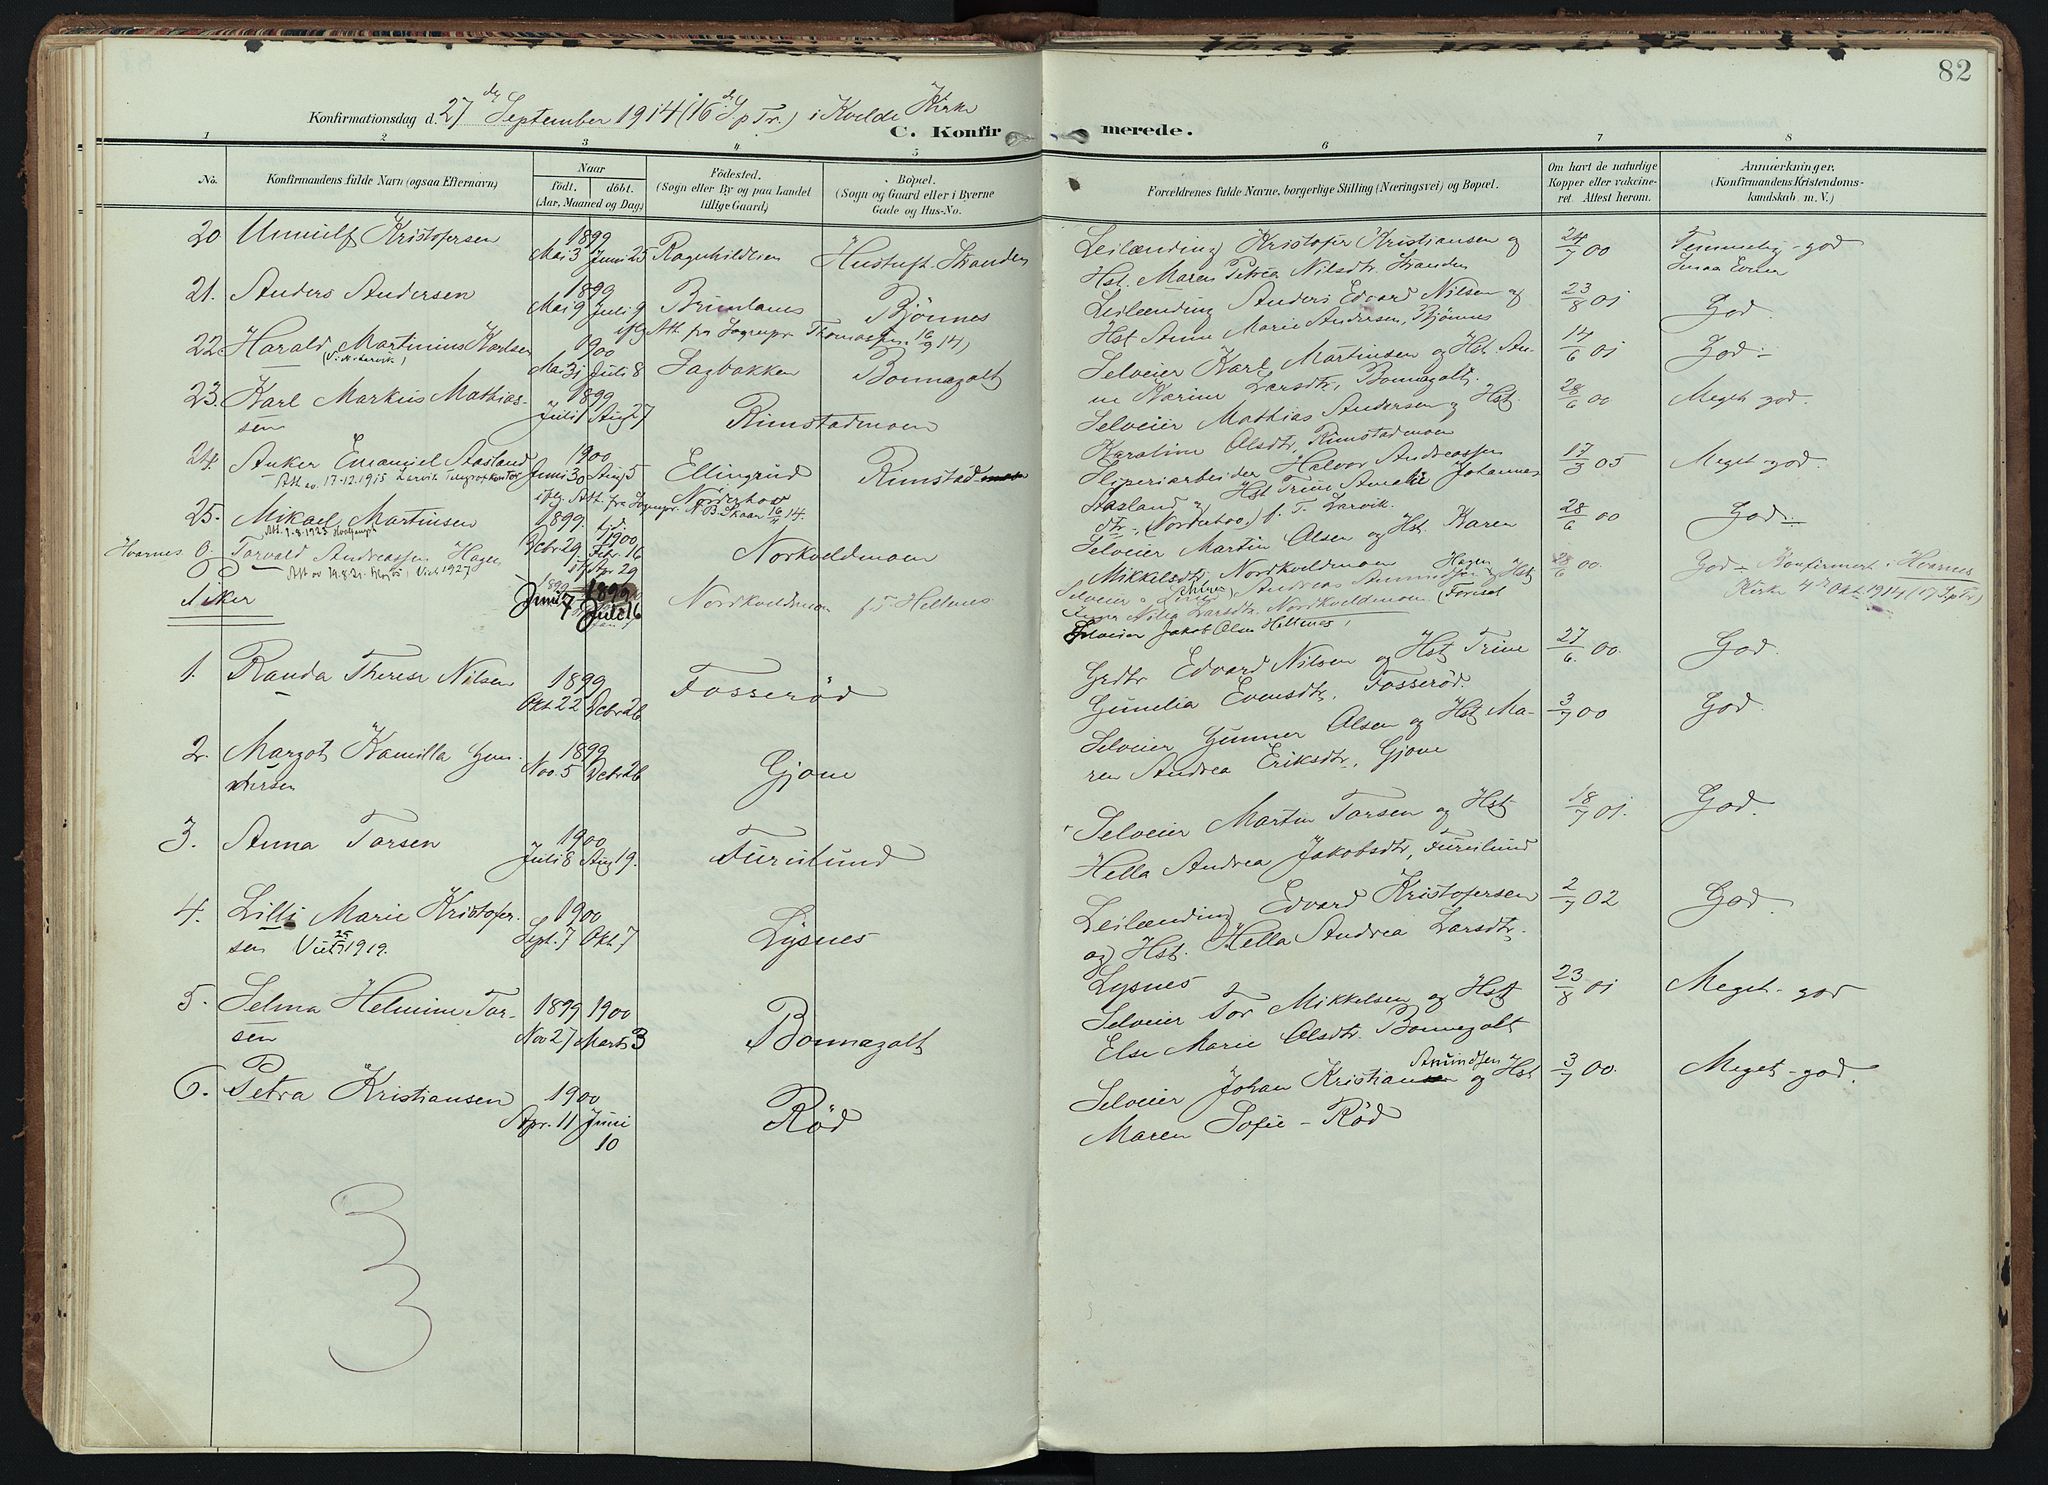 82
Konfirmationsdag d. 27 de September 1914 (16 de S p Tr.) i Kvelde Kirke
C. Konfirmerede.
1 2 3 4 5 6 7 8
No.
Konfirmandens fulde Navn (ogsaa Efternavn)
Naar
født. døbt.
(Aar, Maaned og Dag)
Fødested.
(Sogn eller By og paa Landet
tillige Gaard)
Bopæl.
(Sogn og Gaard eller i Byerne
Gade og Hus-No.
Forældrenes fulde Navne, borgerlige Stilling (Næringsvei) og Bopæl.
Om havt de naturlige
Kopper eller vakcine-
ret. Attest herom.
Anmærkninger.
(Konfirmandens Kristendoms-
kundskab m. V.)
20 Kristofersen 1899 Mai 3 Juni 25 Ragnhildlien Stranden
Leilænding Kristofer Kristiansen og
Hst. Maren Petrea Nilsdtr. Stranden
24/7 00 Temmelig-god
21. Anders Andersen 1899 Mai 9 Juli 9 Brunlanes Bjønnes
Leilænding Anders Edvard Nilsen og
Hst Anne Marie Andersen, Bjønnes
23/8 01 God.
iflg Att. fra Sognepr. Thomassen 16/9 14)
22. Harald Martinius Karlsen 1900 Mai 31 Juli 8 Sagbakken Bonnagolt
Selveier Karl Martinsen og Hst. An-
ne Karine Larsdtr, Bonnagolt.
14/6 01 God
23. Karl Markus Mathias-
sen
1899 Juli 1 Aug 27 Rimstadmoen
Selveier Mathias Andersen og Hst.
Karoline Olsdtr, Rimstadmoen
28/6 00 Meget-god.
24. Anker Emanuel Aasland
Att. av 17-12.1915 Larvik Telegrafkontor
1900 Juni 30 Aug 5 Ellingrud Norderhov Rimstad
Sliperiarbeider Halvor Andreassen
Aasland og Hst Trine Amalie Johannes
dtr. (Norderhov) f. T. Larvik.
17/3 05 Meget-god.
iflg. Att. fra Sognepr. N. B. Skaar 16/4 14.
25. Mikael Martinsen
1899 Debr 29. 1900 Febr. 16 Norkveldmoen
Selveier Martin Olsen og Hst. Karen
Mikkelsdtr, Nordkveldmoen
28/6 00 God
Hvarnes 0. Torvald Andreassen Hagen
1899 Juni 7 Juli 16 Nordkveldmoen f. T. Heltnes
Selveier Andreas Amundsen Hagen og Hst
Larsdtr. Nordkveldmoen
Selveier Jakob Olsen Heltnes,
28/6 00. God - Konfirmert i Hvarnes
Kirke 4de Okt. 1914 (17 S p Tr)
Piker
1. Randa Therese Nilsen 1899 Okt 22 Debr 26 Fosserød
Grdtr Edvard Nilsen og Hst Trine
Gunelia Evensdtr, Fosserød.
27/6. 00. God.
2. Margot Kamilla Gun-
dersen
1899 Nov. 5 Debr 26 Gjone
Selveier Gunner Olsen og Hst Ma-
ren Andrea Eriksdtr, Gjone
3/7 00 God.
3. Anna Torsen 1900 Juli 8 Aug 19. Furulund
Selveier Martin Torsen og Hst
Hella Andrea Jakobsdtr, Furulund
18/7 01. God.
4. Lilli Marie Kristofer-
sen Viet 1919.
1900 Sept. 7 Okt 7 Lysnes
Leilænding Edvard Kristofersen
og Hst. Hella Andrea Larsdtr.
Lysnes
2/7 02 God.
5. Selma Helmine Tor-
sen
1899 Nov 27 1900 Marts 3 Bonnagolt
Selveier Tor Mikkelsen og Hst
Else Marie Olsdtr. Bonnegolt
23/8 01 Meget-god
6. Petra Kristiansen 1900 Apr. 11 Juni 10 Rød
Selveier Johan Kristian Amundsen og Hst
Maren Sofie - Rød
3/7 00. Meget-god.
33